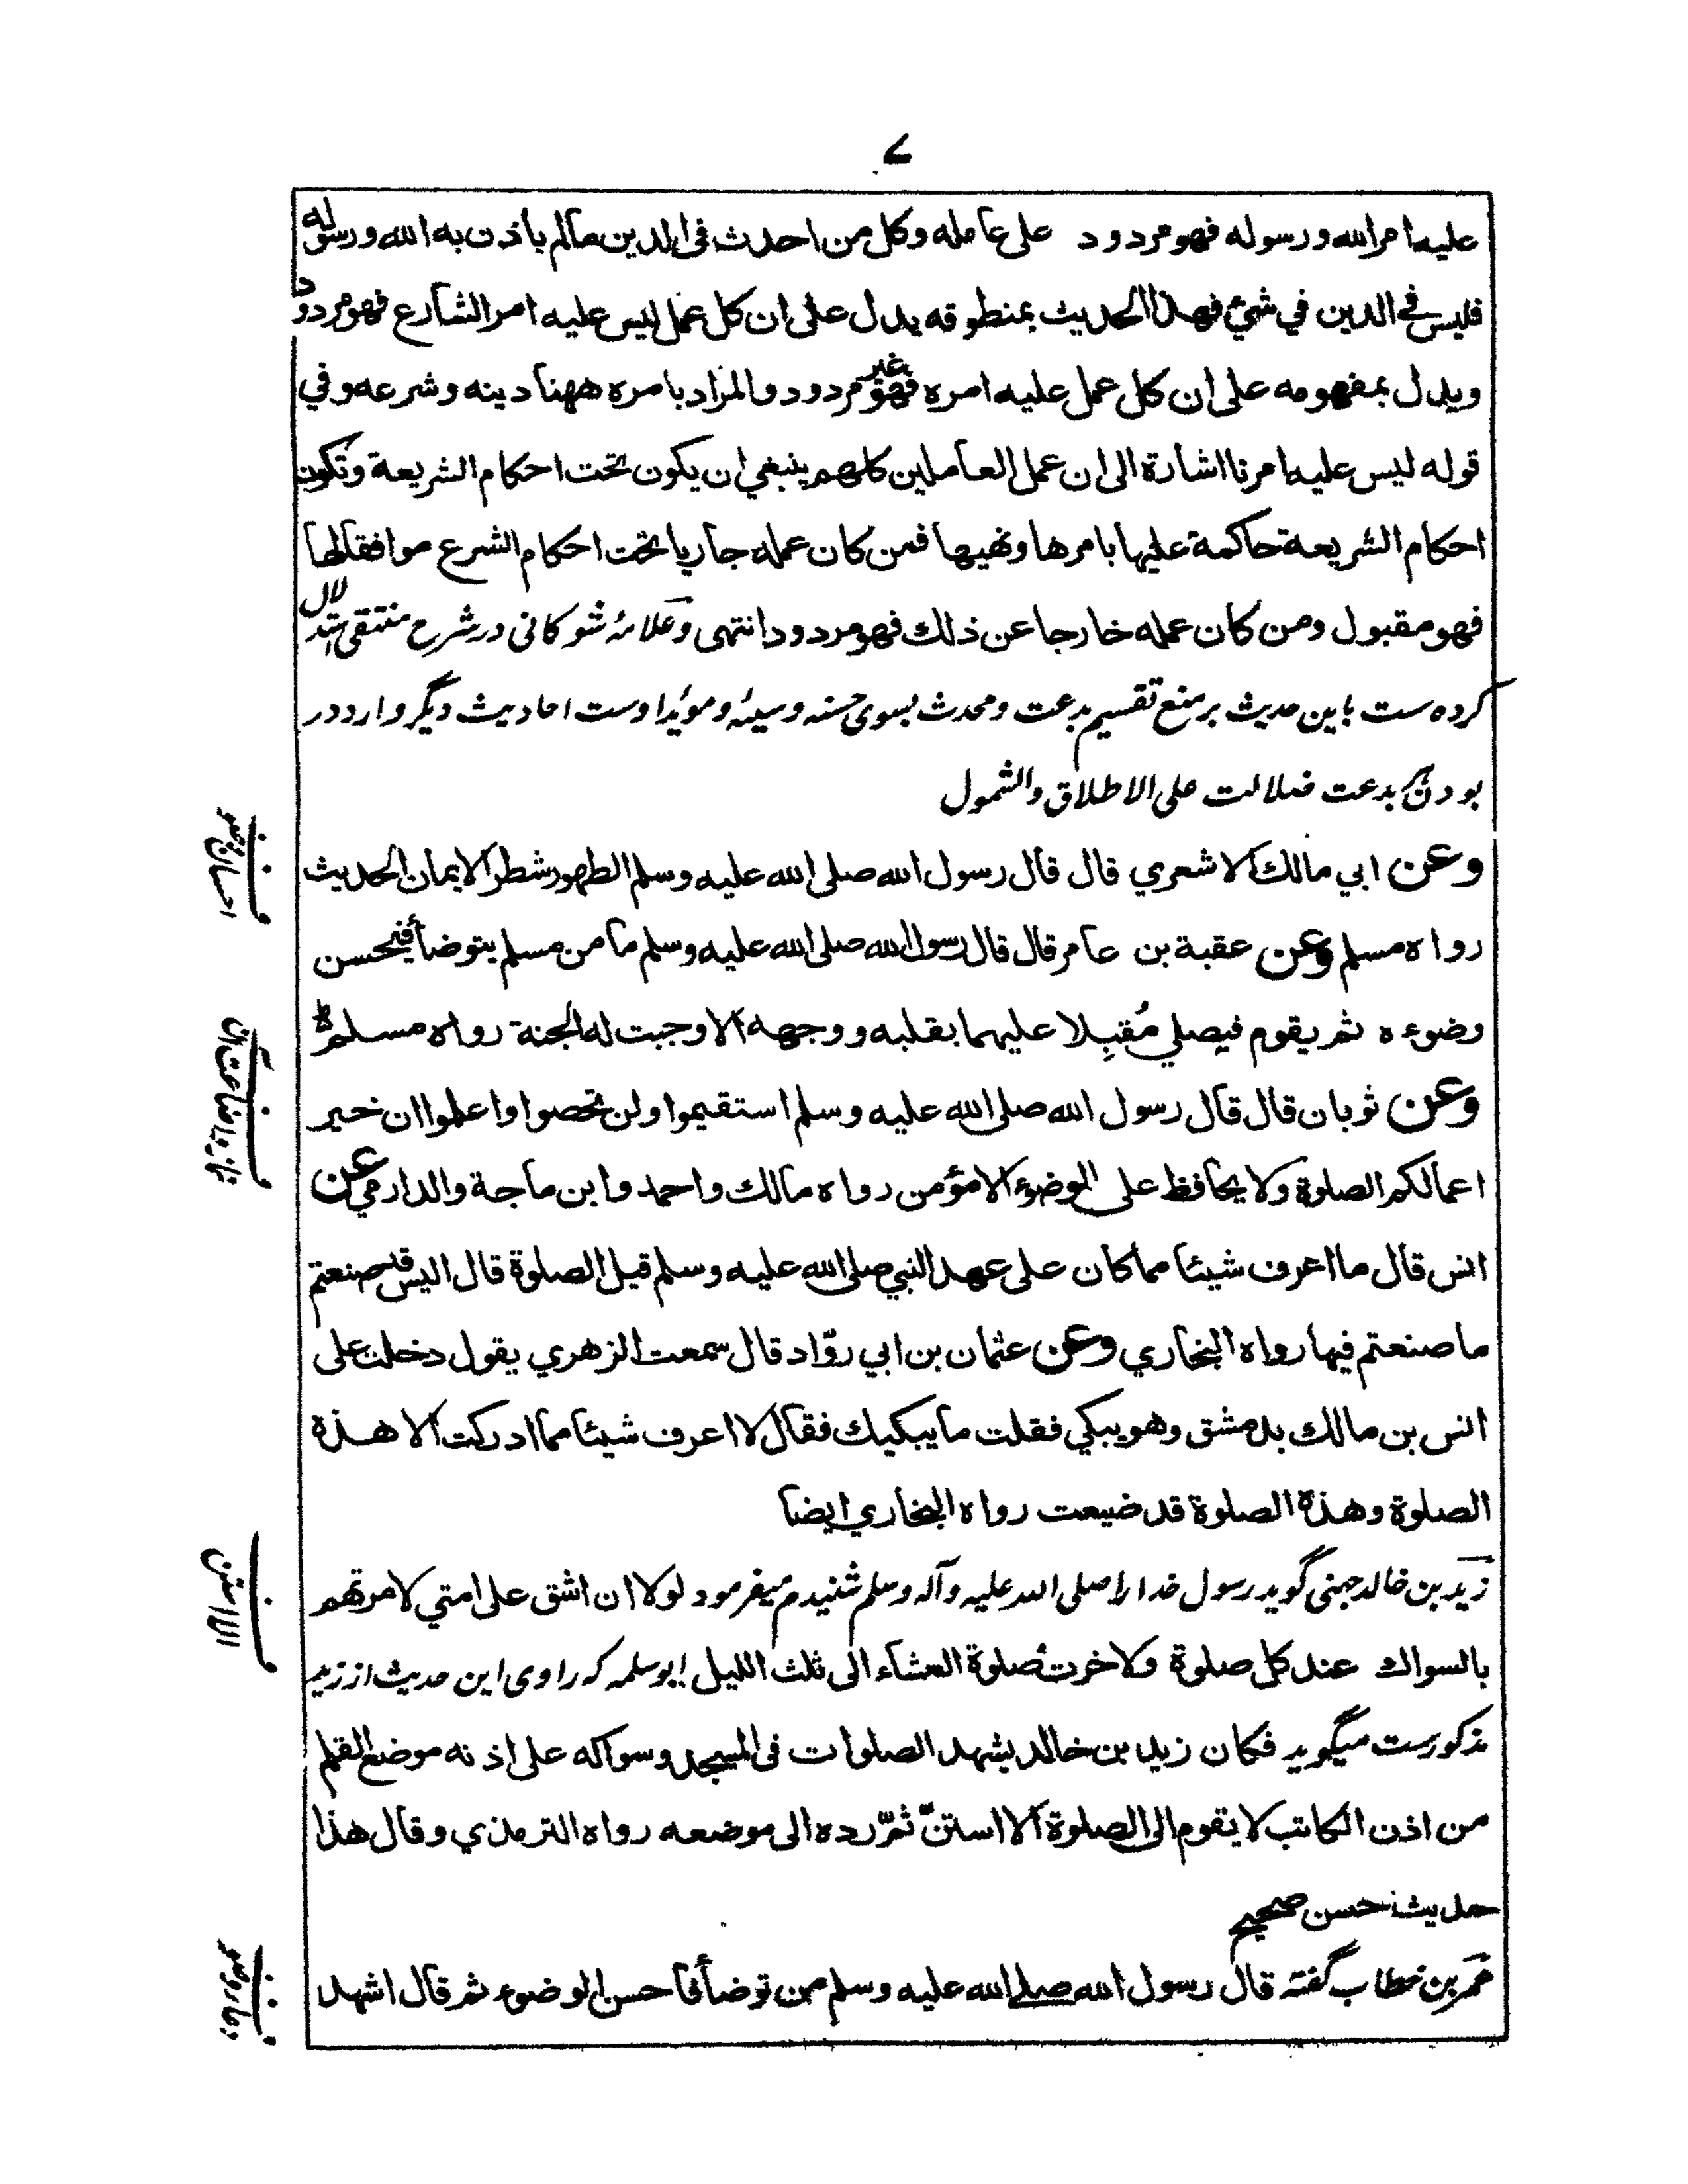 ٧
عليه امر الله ورسوله فهو مردود على عامله وكل من احدث فى الدين مالم ياذن به الله ورسوله
فليس في الدين في شيء فهذا الحديث بمنطوقه يدل على ان كل عمل ليس عليه امر الشارع فهو مردود
ويدل بمفهومه على ان كل عمل عليه امره فهو غير مردود والمراد بامره ههنا دينه وشرعه وفي
قوله ليس عليه امرنا اشارة الى ان عمل العاملين كلهم ينبغي ان يكون تحت احكام الشريعة وتكون
احكام الشريعة حاكمة عليها بامرها ونهيها فمن كان عمله جاريا تحت احكام الشرع موافقا لها
فهو مقبول ومن كان عمله خارجا عن ذلك فهو مردود انتهى وعلامۂ شوكانى در شرح منتقى استدلال
كرده ست باين حديث بر منع تقسيم بدعت ومحدث بسوى حسنه وسيئه ومويد اوست احاديث ديگر وارد در
بودن بدعت ضلالت على الاطلاق والشمول
وعن ابي مالك الاشعري قال قال رسول الله صلى الله عليه وسلم الطهور شطر الايمان الحديث
رواه مسلم وعن عقبة بن عامر قال قال رسول الله صلى الله عليه وسلم ما من مسلم يتوضأ فيحسن
وضوءه ثم يقوم فيصلي مُقبِلا عليهما بقلبه ووجهه الا وجبت له الجنة رواه مسلم
وعن ثوبان قال قال رسول الله صلى الله عليه وسلم استقيموا ولن تحصوا واعلموا ان خير
اعمالكم الصلوة ولا يحافظ على الوضوء الا مؤمن رواه مالك واحمد وابن ماجة والدارمي عن
انس قال ما اعرف شيئا مما كان على عهد النبي صلى الله عليه وسلم قيل الصلوة قال اليس قد صنعتم
ما صنعتم فيها رواه البخاري وعن عثمان بن ابي روّاد قال سمعت الزهري يقول دخلت على
انس بن مالك بدمشق وهو يبكي فقلت ما يبكيك فقال لا اعرف شيئا مما ادركت الا هذة
الصلوة وهذة الصلوة قد ضيعت رواه البخاري ايضا
زيد بن خالد جهنى گويد رسول خدا را صلى الله عليه وآله وسلم شنيدم ميفرمود لولا ان اشق على امتي لامرتهم
بالسواك عند كل صلوة ولاخرت صلوة العشاء الى ثلث الليل ابو سلمه كه راوى اين حديث از زيد
مذكورست ميگويد فكان زيد بن خالد يشهد الصلوات فى المسجد وسواكه على اذنه موضع القلم
من اذن الكاتب لا يقوم الى الصلوة الا استنّ ثمّ رده الى موضعه رواه الترمذي وقال هذا
حديث حسن صحيح
عمر بن خطاب گفته قال رسول الله صلے الله عليه وسلم من توضأ فاحسن الوضوء ثم قال اشهد
احسان وضو